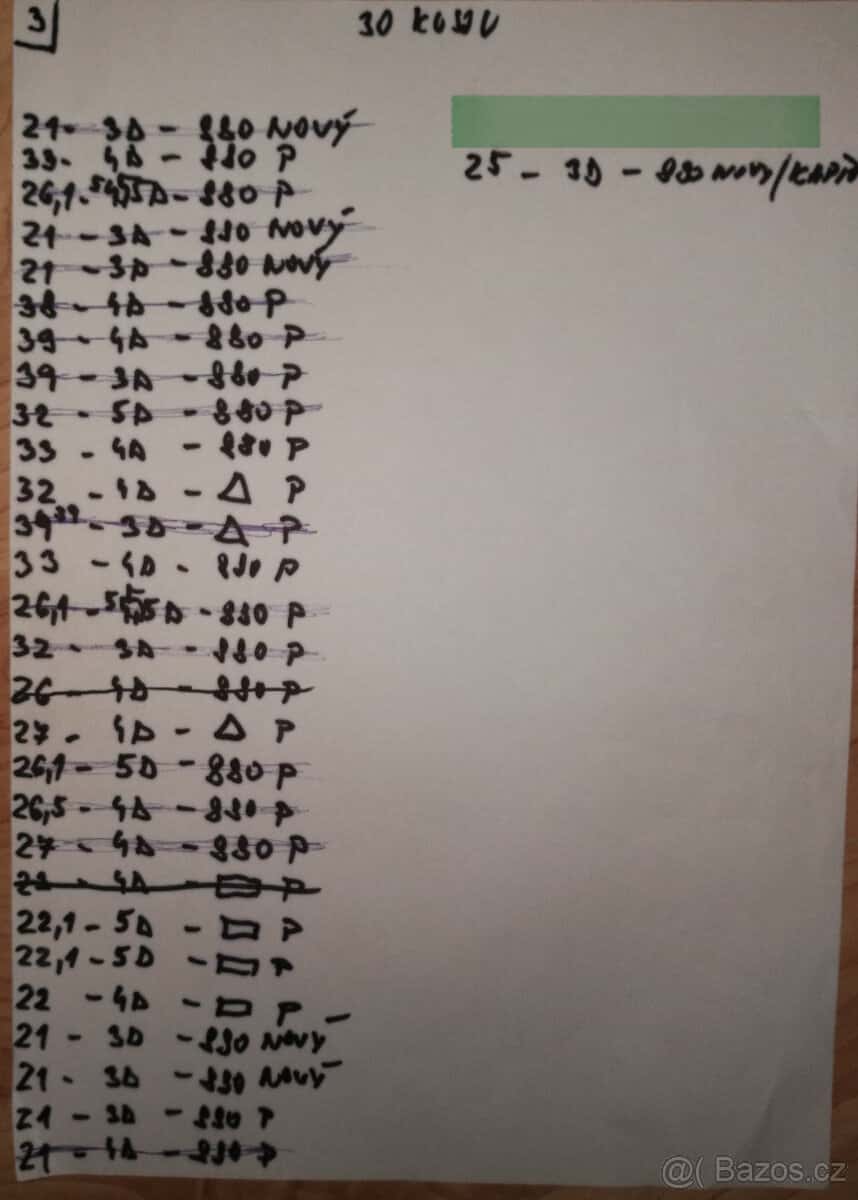 3
30 KUSU
21 - 3D - 880 NOVÝ
33 - 4D - 880 P
26,1 - 5D - 880 P
21 - 3D - 880 NOVÝ
21 - 3D - 880 NOVÝ
38 - 4D - 880 P
39 - 4D - 880 P
39 - 3D - 880 P
32 - 5D - 880 P
33 - 4D - 880 P
32 - 4D - △ P
39 - 3D - △ P
33 - 4D - 880 P
26,1 - 5D - 880 P
32 - 3D - 880 P
26 - 4D - 880 P
27 - 4D - △ P
26,1 - 5D - 880 P
26,5 - 4D - 880 P
27 - 4D - 880 P
4D - ▭ P
22,1 - 5D - ▭ P
22,1 - 5D - ▭ P
22 - 4D - ▭ P
21 - 3D - 880 NOVÝ
21 - 3D - 880 NOVÝ
21 - 3D - 880 P
21 - 4D - 880 P
25 - 3D - 880 NOVY/
@( Bazos.cz